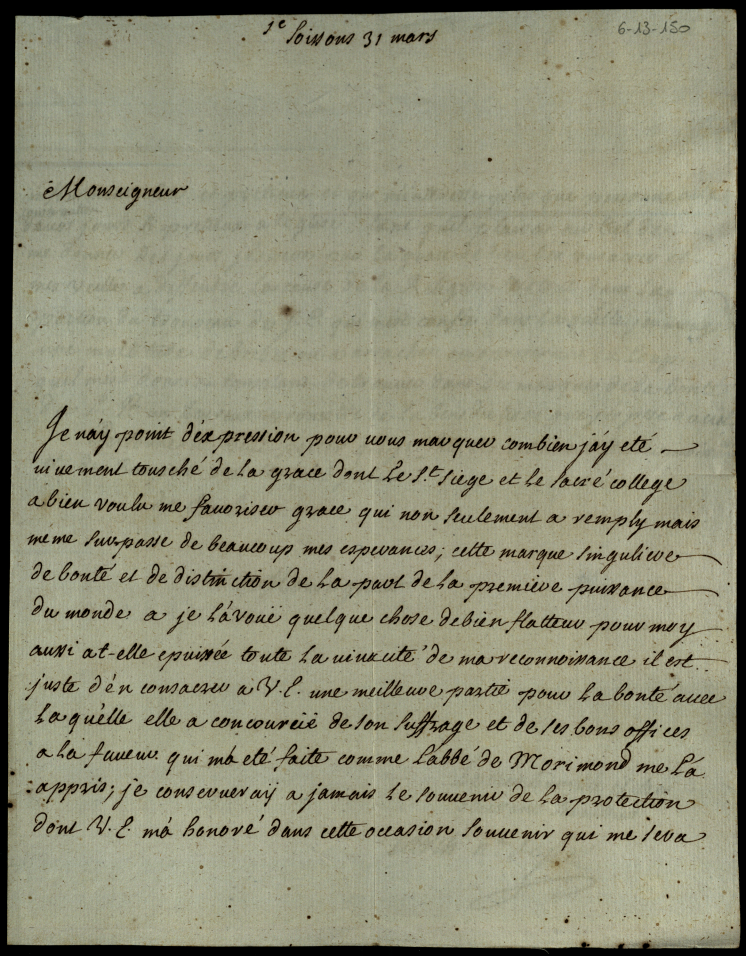 Je
Soissons 31 mars
6-13-150
Monseigneur
Je n'ay point d'expression pour vous marquer combien j'ay eté
vivement tousché de la grace dont Le St. siege et le sacré college
a bien voulu me favoriser grace qui non seulement a remply mais
meme surpasse de beaucoup mes esperances; cette marque singuliere
de bonté et de distinction de la part de la premiere puissance
du monde a je L'avoüe quelque chose de bien flatteur pour moy
aussi at-elle epuisée toute la vivacité de ma reconnoissance il est
juste d'en consacrer a V. E. une meilleure partie pour la bonté avec
La quelle elle a concourue de son suffrage et de ses bons offices
a la faveur qui m'a eté faite comme L'abbé de Morimond me L'a
appris; je conserveray a jamais le souvenir de la protection
dont V. E. m'a honoré dans cette occasion souvenir qui me sera